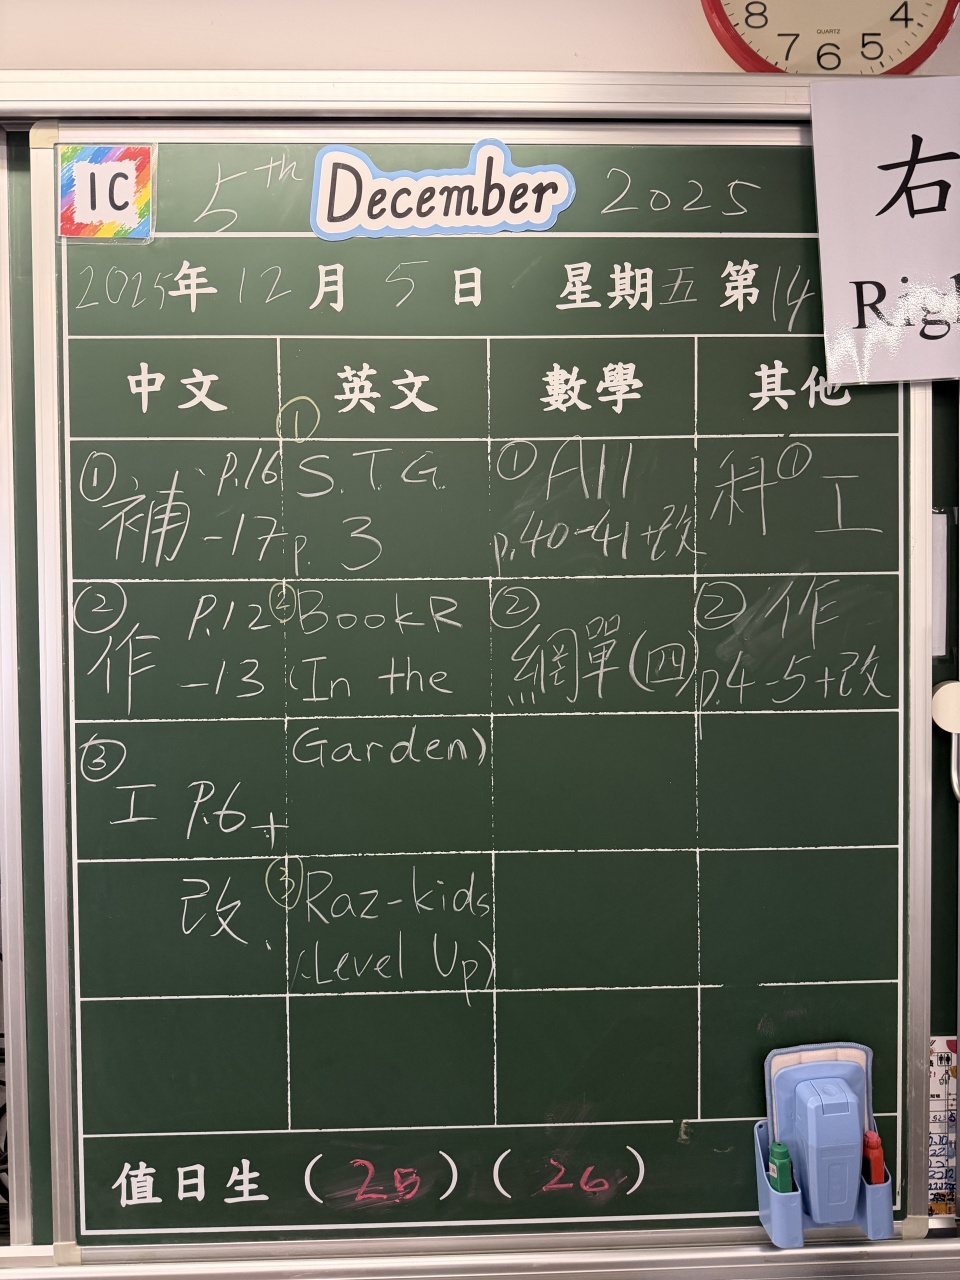 8 7 6 5 4
QUARTZ
右
Rig
1C 5th December 2025
2025年12月5日 星期五 第14
中文 英文 數學 其他
① 補 P.16-17
② 作 P.12-13
③ 工 P.6+
改.
① S.T.G.
p. 3
② BookR
(In the
Garden)
③ Raz-kids
(Level Up)
① A11
p.40-41+改
② 網單(四)
科① 工
② 作
p.4-5+改
值日生 (25)(26)